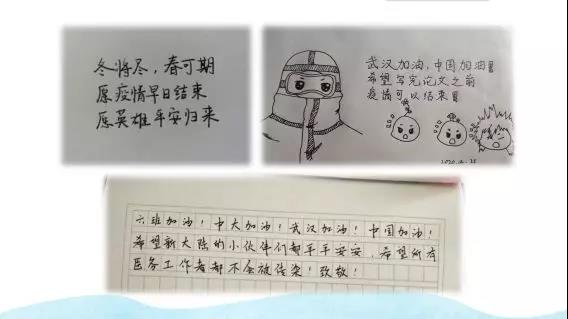 冬将尽，春可期
愿疫情早日结束
愿英雄平安归来
武汉加油，中国加油！！
希望写完论文之前
疫情可以结束！！
六班加油！中大加油！武汉加油！中国加油！
希望新大陆的小伙伴们都平平安安，希望所有
医务工作者都不会被传染！致敬！